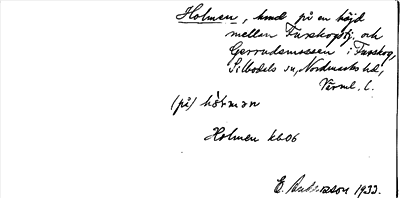 Holmen, hmd på en höjd
mellen Furskogstj. och
Gerrudsmossen i Furskog,
Silbodals sn, Nordmarks hd,
Värml. l.
(på) hòlmən
Holmen kb06
E. Andersson 1933.